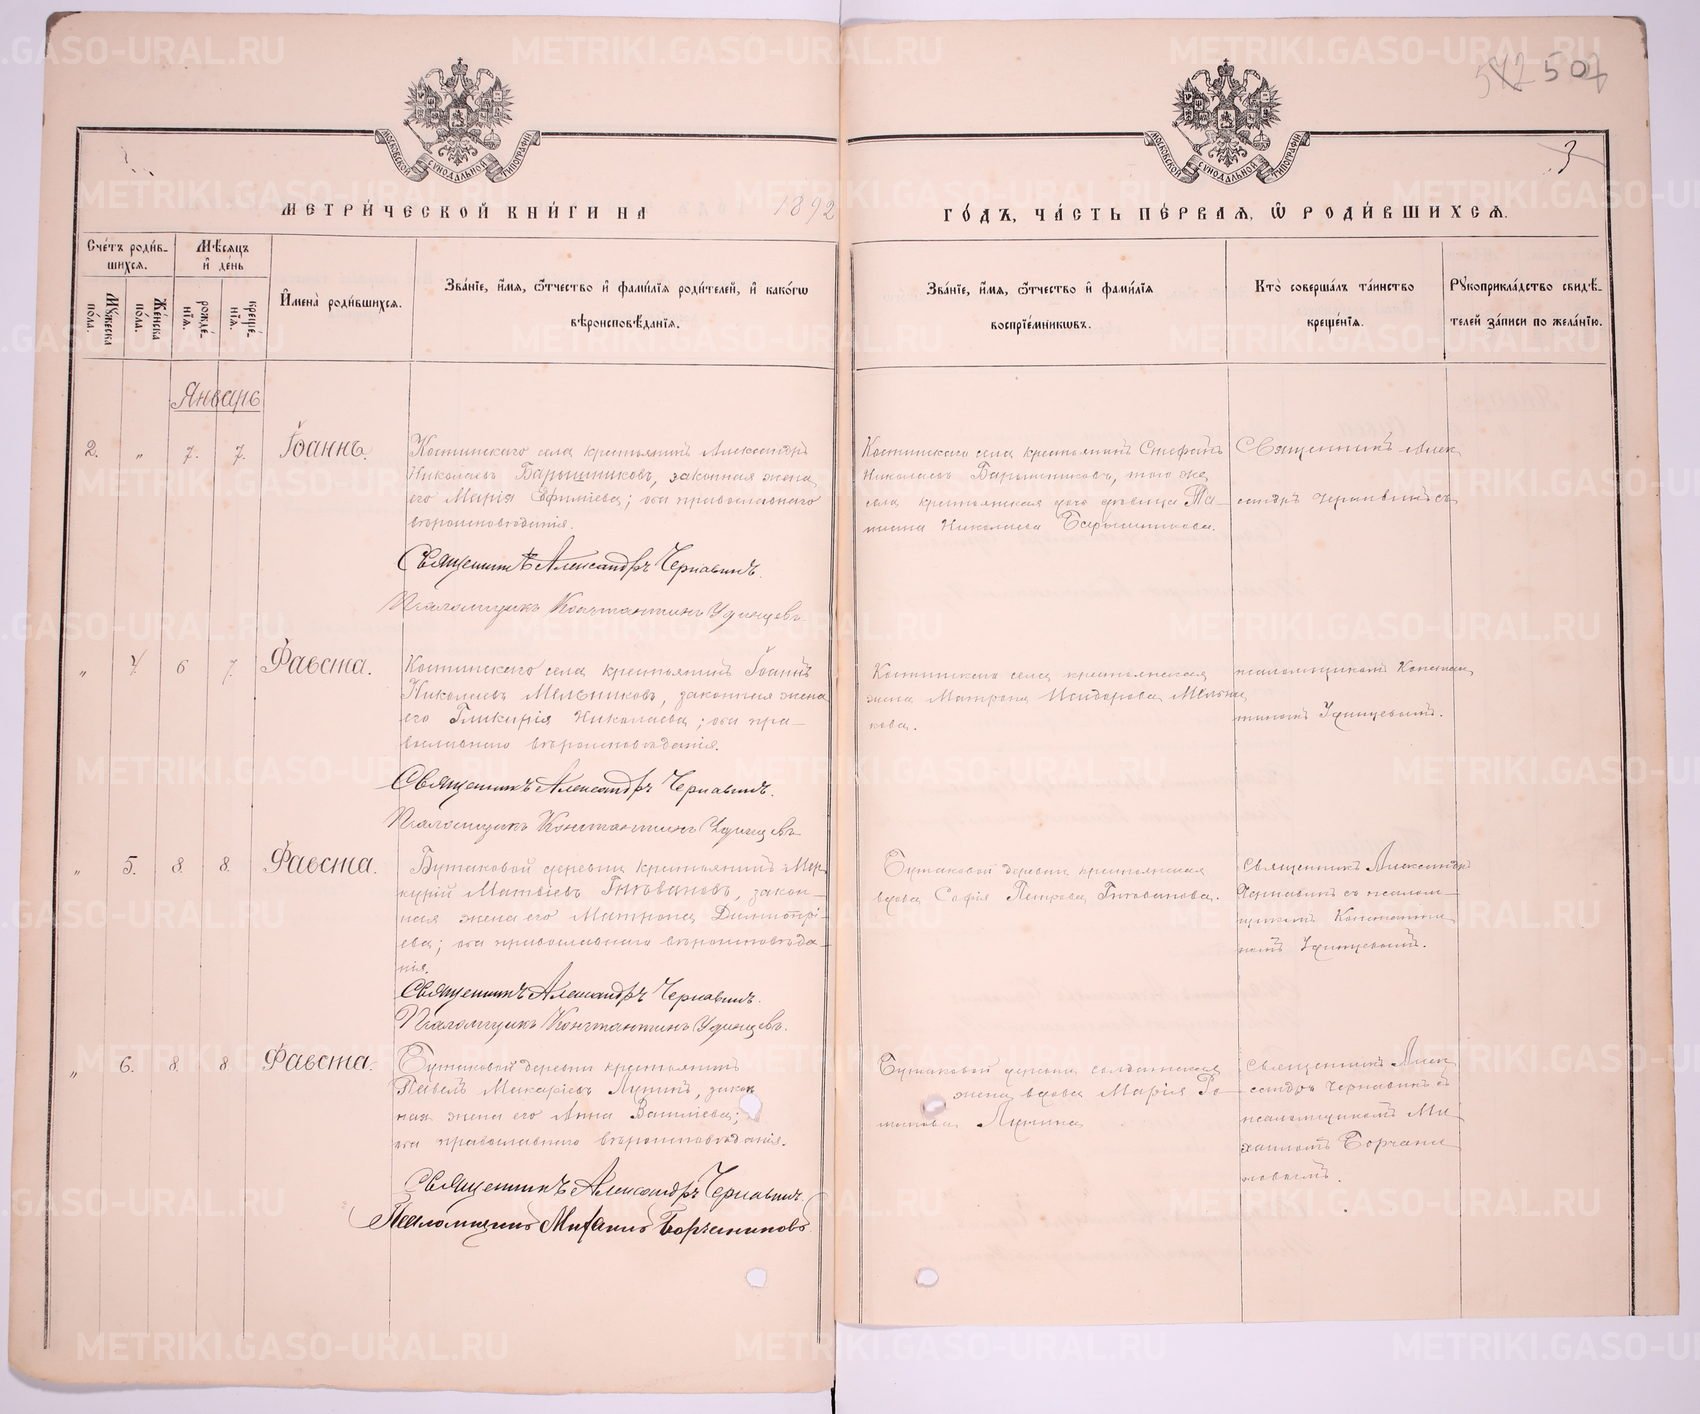 572 507
3
МОСКОВСКОЙ СѴНОДАЛЬНОЙ ТИПОГРАФІИ
МОСКОВСКОЙ СѴНОДАЛЬНОЙ ТИПОГРАФІИ
МЕТРИ́ЧЕСКОЙ КНИ́ГИ НА 1892
ГО́ДЪ, ЧА́СТЬ ПЕ́РВАЯ, Ѡ РОДИ́ВШИХСЯ.
Сче́тъ роди́в-
шихся.
Мѣсяцъ
и де́нь
Мꙋжеска по́ла.
Же́нска по́ла.
рожде́-
нія.
креще́-
нія.
Имена̀ роди́вшихся.
Зва́ніе, и́мя, ѻ́тчество и фами́лія роди́телей, и како́гѡ
вѣроисповѣ́данія.
Зва́ніе, и́мя, ѻ́тчество и фами́лія
воспріе́мникѡвъ.
Кто̀ соверша́лъ та́инство
креще́нія.
Рꙋкоприкла́дство свидѣ́-
телей за́писи по жела́нію.
Январь
2. " 7. 7. Іоаннъ.
Костинскаго села крестьянинъ Александръ
Николаевъ Барышниковъ, законная жена
его Марія Ефиміева; оба православнаго
вѣроисповѣданія.
Священникъ Александръ Чернавинъ.
Псаломщикъ Константинъ Удинцевъ.
Костинскаго села крестьянинъ Стефанъ
Николаевъ Барышниковъ, того же
села крестьянская дочь дѣвица
Николаева Барышникова.
Священникъ Алек
сандръ Чернавинъ съ
" 4. 6 7. Фавста.
Костинскаго села крестьянинъ Іоаннъ
Николаевъ Мельниковъ, законная жена
его Гликирія Николаева; оба пра-
вославнаго вѣроисповѣданія.
Священникъ Александръ Чернавинъ.
Псаломщикъ Константинъ Удинцевъ
Костинскаго села крестьянская
жена Матрона Исидорова Мельни
кова.
псаломщикомъ Констан
тиномъ Удинцевымъ.
" 5. 8 8. Фавста.
Бутаковой деревни крестьянинъ Мер
курій Матвіевъ Гнѣвановъ, закон-
ная жена его Матрона Димитрі-
ева; оба православнаго вѣроисповѣда-
нія.
Священникъ Александръ Чернавинъ.
Псаломщикъ Константинъ Удинцевъ.
Бутаковой деревни крестьянская
вдова Софія Петрова Гнѣванова.
Священникъ Александръ
Чернавинъ съ псалом-
щикомъ Константи
номъ Удинцевымъ.
" 6. 8. 8 Фавста.
Бутаковой деревни крестьянинъ
Павелъ Макаріевъ Лунинъ, закон
ная жена его Анна Василіева;
оба православнаго вѣроисповѣданія.
Священникъ Александръ Чернавинъ.
Псаломщикъ Михаилъ Борчаниновъ
Бутаковой деревни солдатская
жена вдова Марія Ро-
манова Лунина
Священникъ Алек
сандръ Чернавинъ съ
псаломщикомъ Ми-
хаиломъ Борчани
новымъ.